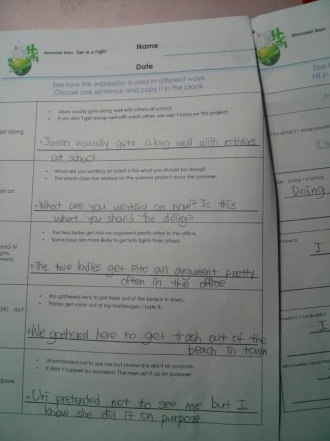 Rosendale Bean Get in a Fight
Name
Date
See how the expression is used in different ways.
Choose one sentence and copy it in the blank.
Jason usually gets along well with others at school.
If you don't get along well with each other, we can't copy on this project.
get along
Jason usually gets along well with others
at school.
What are you working on now? Is this what you should be doing?
The whole class has worked on the science project since the summer.
work on
What are you working on now? Is this
what you should be doing?
The two ladies get into an argument pretty often in the office.
Some boys are more likely to get into fights than others.
The two ladies get into an argument pretty
often in the office
We gathered here to get trash out of the beach in town.
Please get onion out of my hamburger. I hate it.
out
We gathered here to get trash out of the
beach in town
Uri pretended not to see me but I knew she did it on purpose.
It didn't happen by accident. The man set it up on purpose!
purpose
Uri pretended not to see me but I
know she did it on purpose
See
Fill in
Doing
I
I